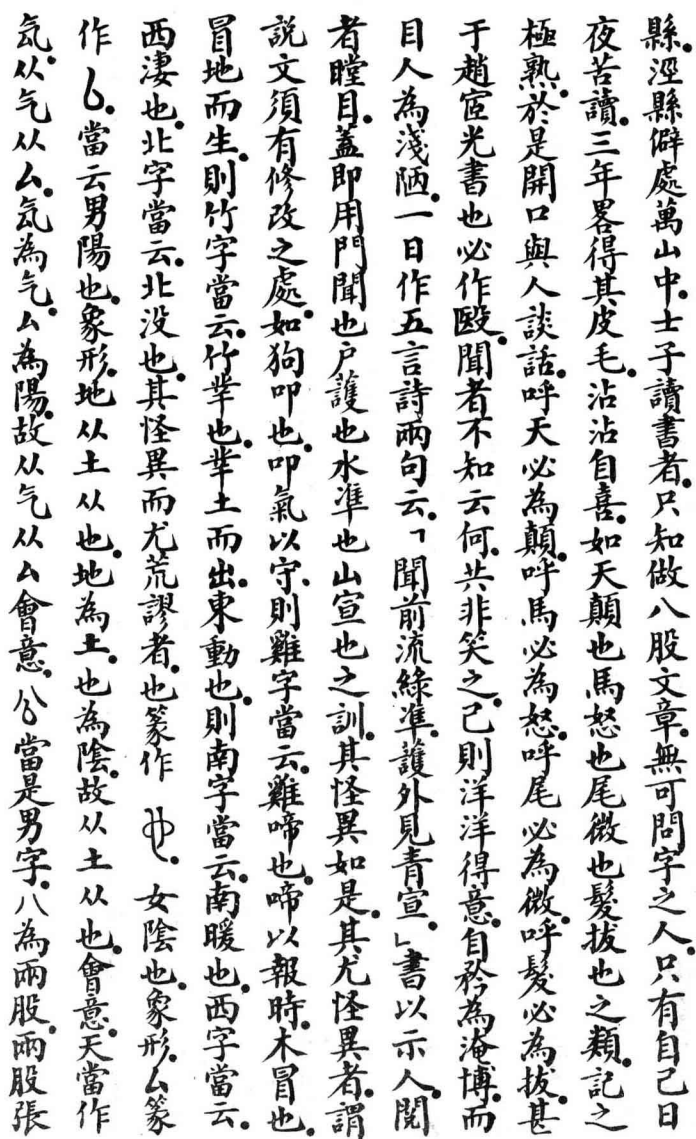 縣。涇縣僻處萬山中。士子讀書者。只知做八股文章。無可問字之人。只有自己日
夜苦讀。三年畧得其皮毛。沾沾自喜。如天顛也馬怒也尾微也髮拔也之類。記之
極熟。於是開口與人談話。呼天必為顛。呼馬必為怒。呼尾必為微。呼髮必為拔。甚
于趙宧光書也必作殹。聞者不知云何。共非笑之。己則洋洋得意。自矜為淹博。而
目人為淺陋。一日作五言詩兩句云。「聞前流綠準。護外見青宣。」書以示人。閱
者瞠目。蓋即用門聞也戶護也水準也山宣也之訓。其怪異如是。其尤怪異者。謂
說文須有修改之處。如狗叩也。叩氣以守。則雞字當云。雞啼也。啼以報時。木冒也。
冒地而生。則竹字當云。竹芈也。芈土而出。東動也。則南字當云。南暖也。西字當云。
西淒也。北字當云。北没也。其怪異而尤荒謬者。也篆作 。女陰也。象形。厶篆
作 。當云男陽也。象形。地从土从也。地為土。也為陰。故从土从也。會意。天當作
氖。从气从厶。氖為气。厶為陽。故从气从厶會意。 當是男字。八為兩股。兩股張